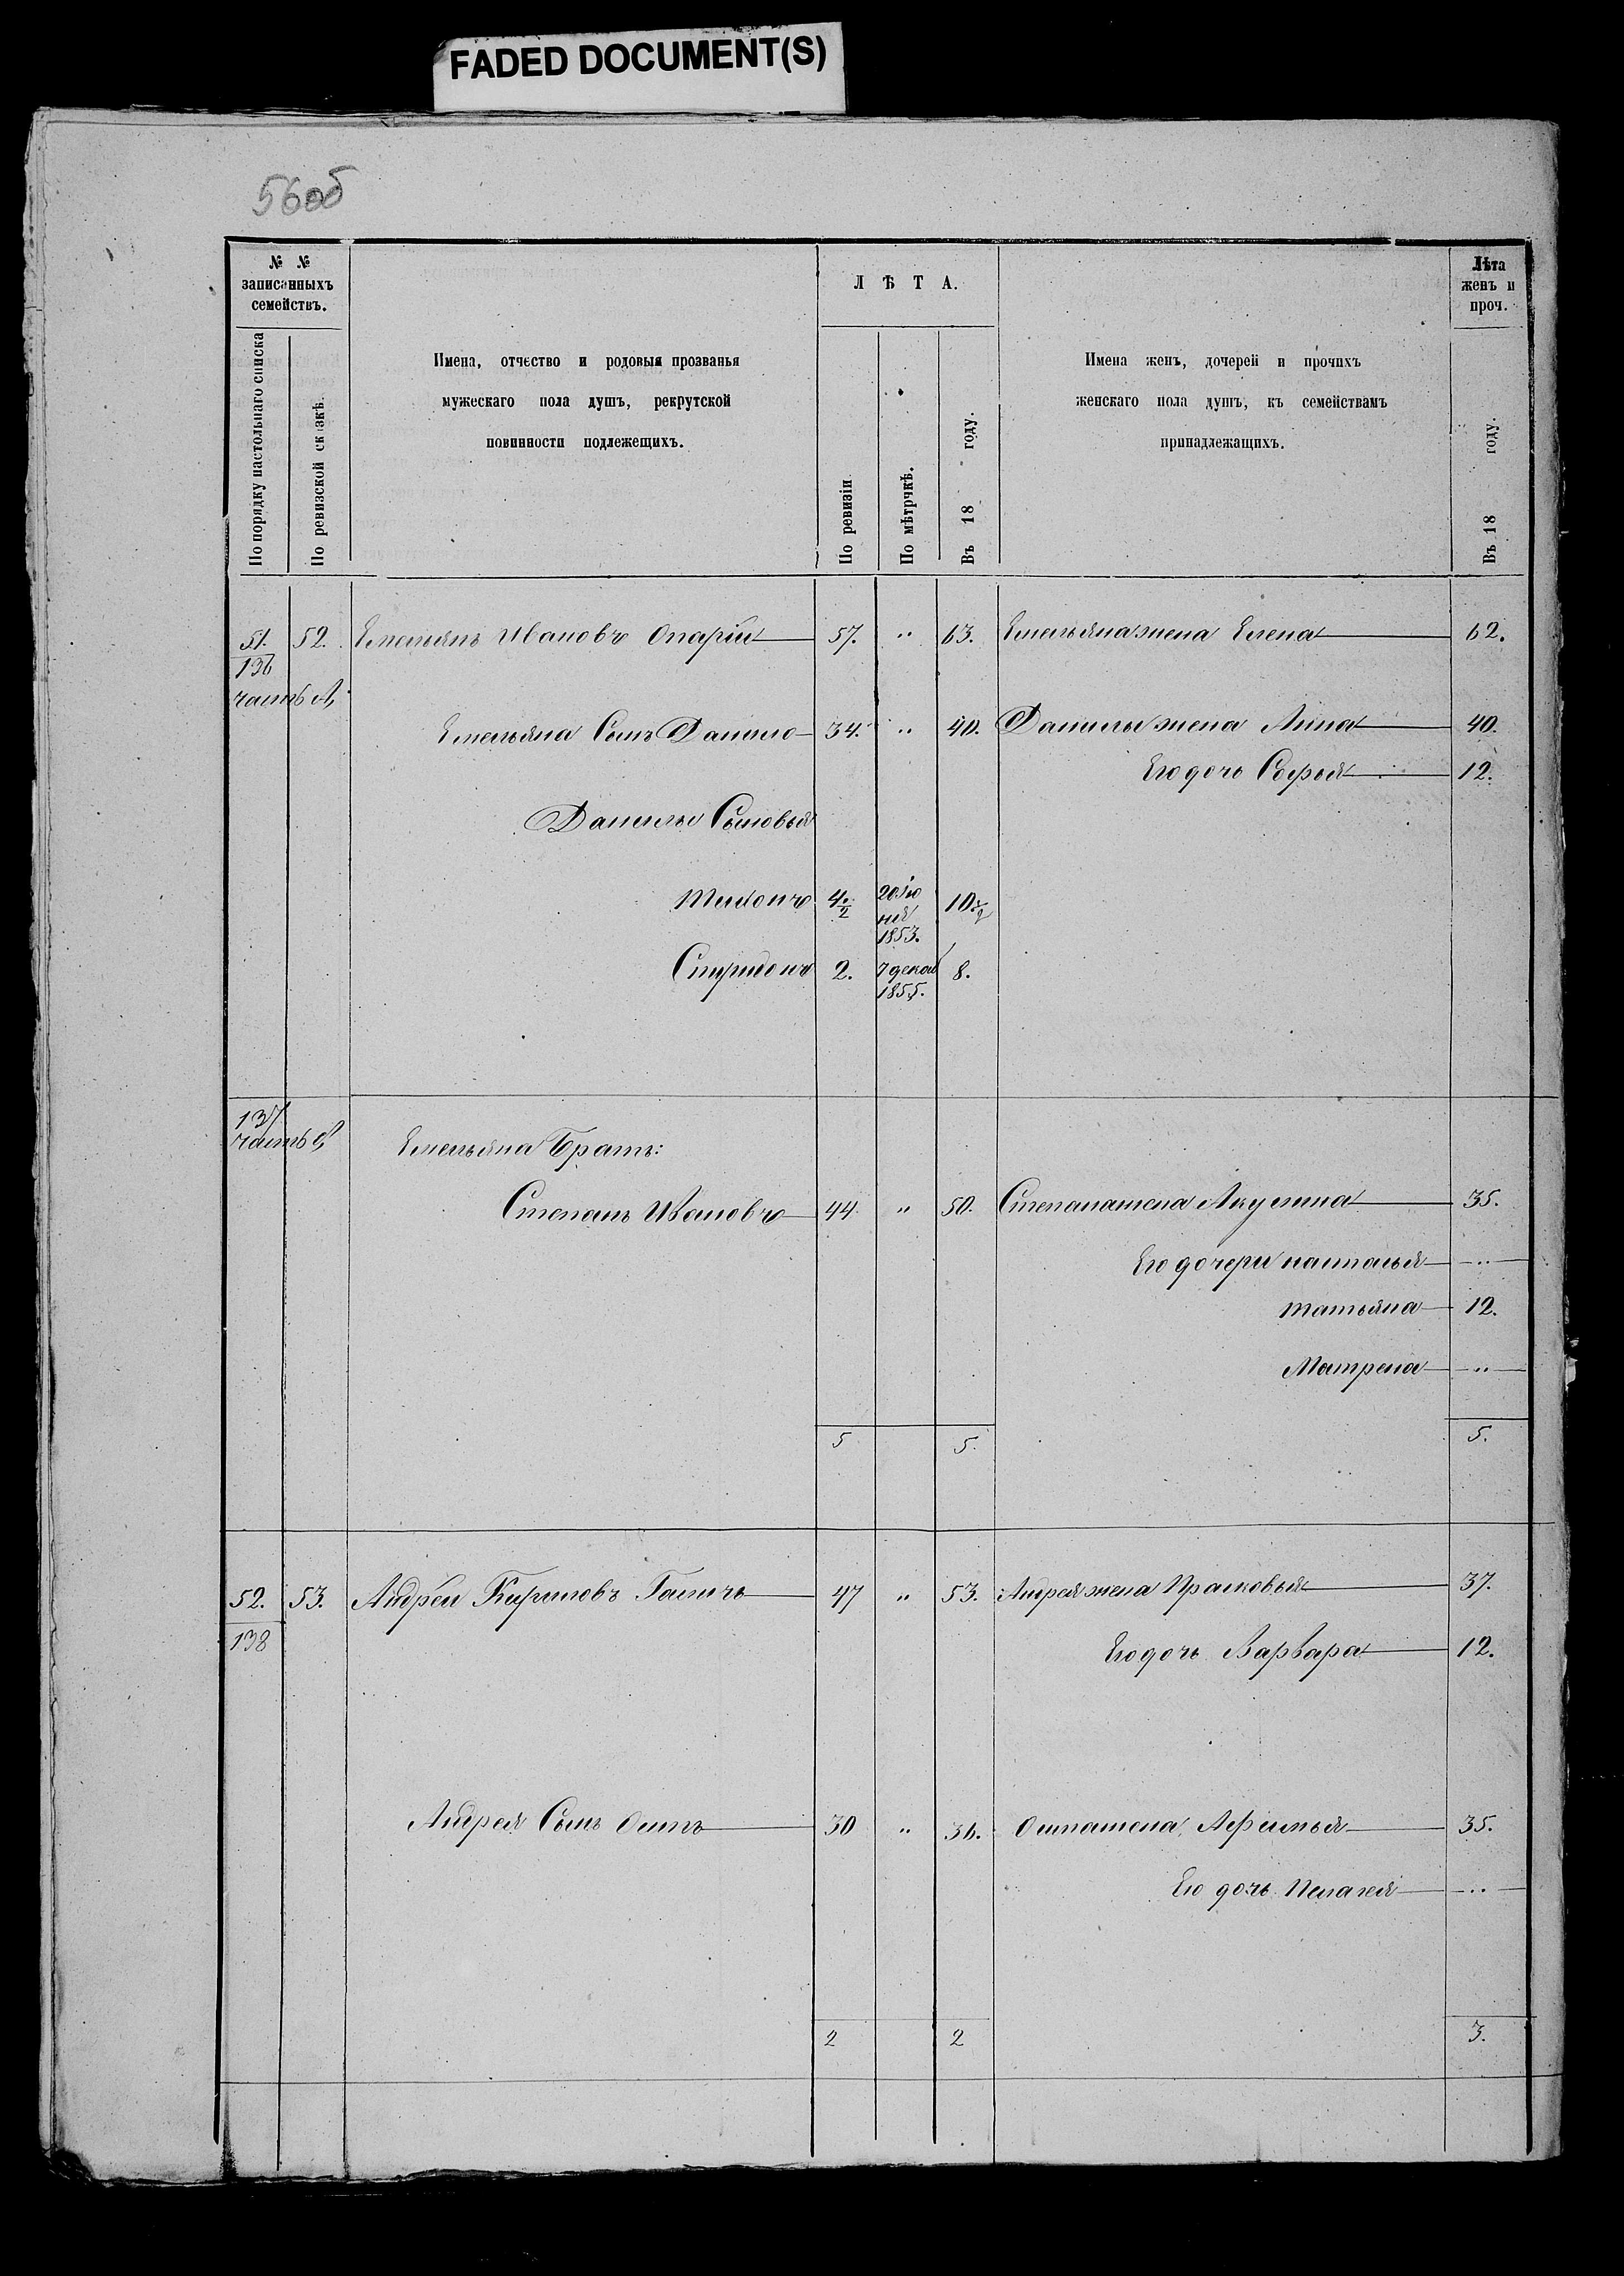 FADED DOCUMENT(S)
56об
№ №
записанныхъ
семействъ.
По порядку настольнаго списка
По ревизской сказкѣ.
Имена, отчество и родовыя прозванья
мужескаго пола душъ, рекрутской
повинности подлежещихъ.
Л Ѣ Т А.
По ревизіи
По мѣтрчкѣ.
Въ 18 году.
Имена женъ, дочерей и прочихъ
женскаго пола душъ, къ семействамъ
принадлежащихъ.
Лѣта
женъ и
проч.
Въ 18 году.
51. 52. Емельянъ Ивановъ Опарій 57. " 63. Емельяна жена Елена 62.
136
часть А,
Емельяна Сынъ Данило 34. " 40. Данилы жена Анна 40.
Его дочь Софья 12.
Данилы Сыновья
Тихонъ 4 1/2 20 Ію
ня
1853. 10 1/2
Спиридонъ 2. 7 декаб 8.
1855.
137
часть
Емельяна Братъ:
Степанъ Ивановъ 44. " 50. Степана жена Акулина 35.
Его дочери наталья "
татьяна 12.
Матрена "
5 5. 5.
52. 53. Андрей Кириловъ 47 " 53. Андрея жена Прасковья 37.
138
Его дочь Варвара 12.
Андрея Сынъ Осипъ 30 " 36. Осипа жена Афимья 35.
Его дочь Пелагея "
2 2 3.